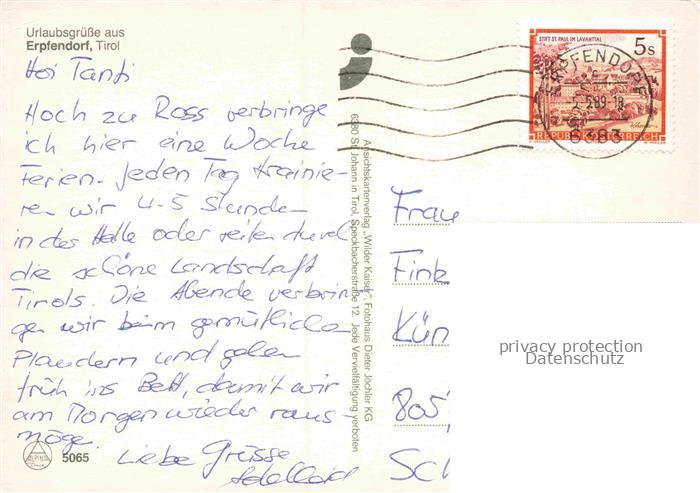 Urlaubsgrüße aus
Erpfendorf, Tirol
Hoi Tanti
Hoch zu Ross verbringe
ich hier eine Woche
Ferien. Jeden Tag trainie-
ren wir 4-5 Stunden
in der Halle oder reiten durch
die schöne Landschaft
Tirols. Die Abende verbrin-
gen wir beim gemütlichen
Plaudern und gehen
früh ins Bett, damit wir
am Morgen wieder raus-
möge.
Liebe Grüsse
5065
ALPINA
Ansichtskartenverlag „Wilder Kaiser", Fotohaus Dieter Jöchler KG
6380 St. Johann in Tirol, Speckbacherstraße 12. Jede Vervielfältigung verboten
STIFT ST. PAUL IM LAVANTTAL
5s
REPUBLIK ÖSTERREICH
ERPFENDORF
6383
Frau
Fink
Kün
805
Sc
privacy protection
Datenschutz